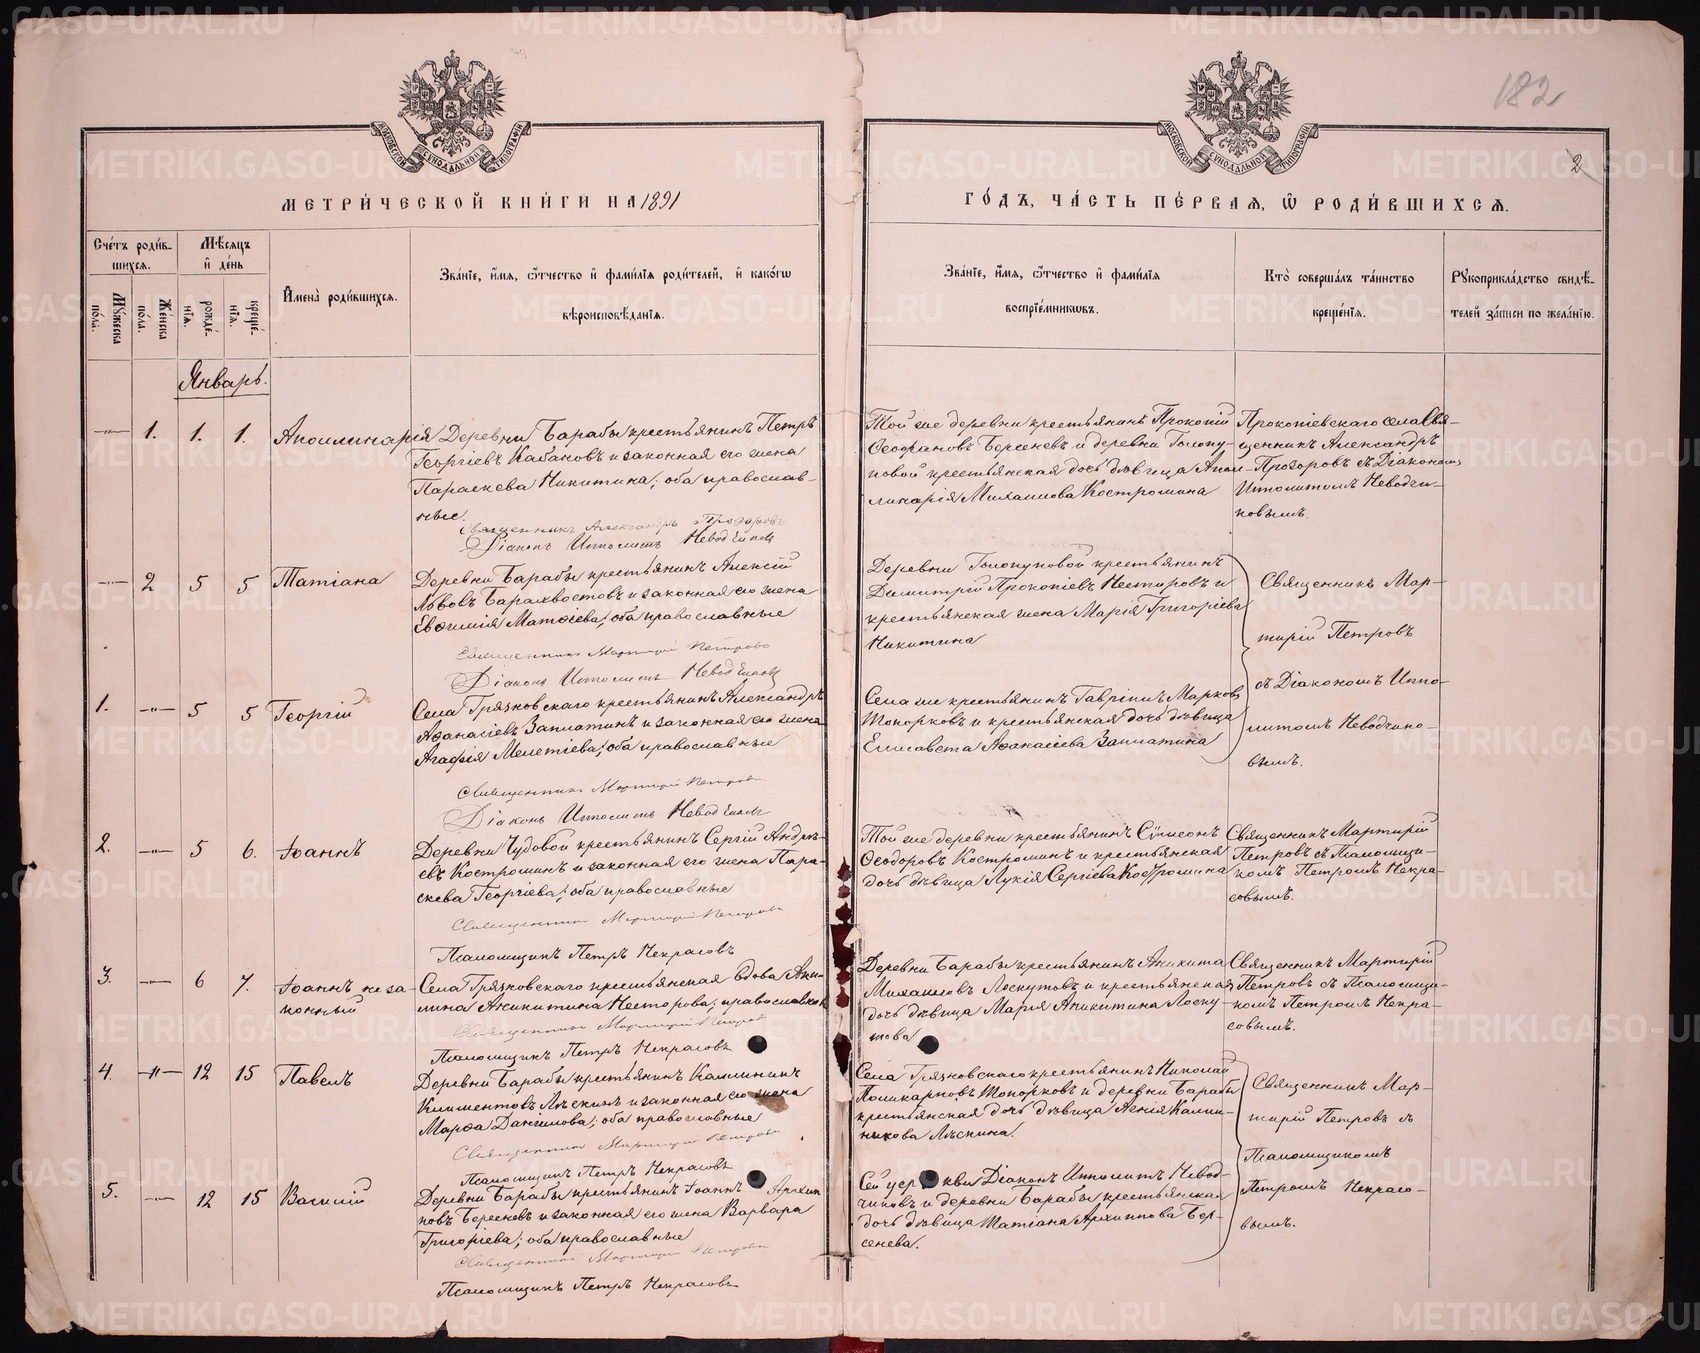 182
2
МОСКОВСКОЙ СУНОДАЛЬНОЙ ТИПОГРАФІИ
МОСКОВСКОЙ СУНОДАЛЬНОЙ ТИПОГРАФІИ
МЕТРИ́ЧЕСКОЙ КНИ́ГИ НА 1891
ГО́ДЪ, ЧА́СТЬ ПЕ́РВАЯ, Ѡ РОДИ́ВШИХСЯ.
Сче́тъ роди́в-
шихся.
Мꙋжеска по́ла.
Же́нска по́ла.
Мѣ́сяцъ
и де́нь
рожде́-
нїя.
креще́-
нїя.
Имена̀ роди́вшихся.
Зва́нїе, и́мя, ѻ́тчество и фами́лїя роди́телей, и како́гѡ
вѣроисповѣ́данїя.
Зва́нїе, и́мя, ѻ́тчество и фами́лїя
воспрїе́мникѡвъ.
Кто̀ соверша́лъ та́инство
креще́нїя.
Рꙋкоприкла́дство свидѣ́-
телей за́писи по жела́нїю.
Январь.
—"— 1. 1. 1. Аполлинарія
Деревни Барабы крестьянинъ Петръ
Георгіевъ Кабановъ и законная его жена
Параскева Никитина; оба православ-
ные.
Священникъ Александръ Прозоровъ
Діаконъ Ипполитъ Неводчиковъ
Той же деревни крестьянинъ Прокопій
Ѳеофановъ Берсеневъ и деревни Голопу-
повой крестьянская дочь дѣвица Апол-
линарія Михаилова Костромина
Прокопіевскаго села Свя-
щенникъ Александръ
Прозоровъ съ Діакономъ
Ипполитомъ Неводчи-
ковымъ.
—"— 2 5 5 Татіана
Деревни Барабы крестьянинъ Алексій
Львовъ Барахвостовъ и законная его жена
Евѳимія Матѳіева; оба православные
Священникъ Мартирій Петровъ
Діаконъ Ипполитъ Неводчиковъ
Деревни Голопуповой крестьянинъ
Димитрій Прокопіевъ Нестеровъ и
крестьянская жена Марія Григоріева
Никитина
Священникъ Мар-
тирій Петровъ
съ Діакономъ Иппо-
литомъ Неводчико-
вымъ.
1. —"— 5 5 Георгій
Села Грязновскаго крестьянинъ Александръ
Аѳанасіевъ Заплатинъ и законная его жена
Агафія Мелетіева; оба православные
Священникъ Мартирій Петровъ
Діаконъ Ипполитъ Неводчиковъ
Села же крестьянинъ Гавріилъ Марковъ
Топорковъ и крестьянская дочь дѣвица
Елисавета Аѳанасіева Заплатина
2. —"— 5 6. Іоаннъ
Деревни Чудовой крестьянинъ Сергій Андре-
евъ Костроминъ и законная его жена Пара-
скева Георгіева; оба православные
Священникъ Мартирій Петровъ
Псаломщикъ Петръ Некрасовъ
Той же деревни крестьянинъ Сѵмеонъ
Ѳеодоровъ Костроминъ и крестьянская
дочь дѣвица Лукія Сергіева Костромина
Священникъ Мартирій
Петровъ съ Псаломщи-
комъ Петромъ Некра-
совымъ.
3. —"— 6 7. Іоаннъ неза-
конный
Села Грязновскаго крестьянская вдова Аки-
лина Аникитина Нестерова; православная
Священникъ Мартирій Петровъ
Псаломщикъ Петръ Некрасовъ
Деревни Барабы крестьянинъ Аникита
Михаиловъ Лоскутовъ и крестьянская
дочь дѣвица Марія Аникитина Лоску-
това
Священникъ Мартирій
Петровъ съ Псаломщи-
комъ Петромъ Некра-
совымъ.
4. —"— 12 15 Павелъ
Деревни Барабы крестьянинъ Каллиникъ
Климентовъ Лѣскинъ и законная его жена
Марѳа Даниилова; оба православные
Священникъ Мартирій Петровъ
Псаломщикъ Петръ Некрасовъ
Села Грязновскаго крестьянинъ Николай
Поликарповъ Топорковъ и деревни Барабы
крестьянская дочь дѣвица Агнія Калли-
никова Лѣскина.
Священникъ Мар-
тирій Петровъ съ
Псаломщикомъ
Петромъ Некрасо-
вымъ.
5. —"— 12 15 Василій
Деревни Барабы крестьянинъ Іоаннъ Архип-
повъ Берсеневъ и законная его жена Варвара
Григоріева; оба православные
Священникъ Мартирій Петровъ
Псаломщикъ Петръ Некрасовъ
Сей церкви Діаконъ Ипполитъ Невод-
чиковъ и деревни Барабы крестьянская
дочь дѣвица Татіана Архиппова Бер-
сенева.
METRIKI.GASO-URAL.RU